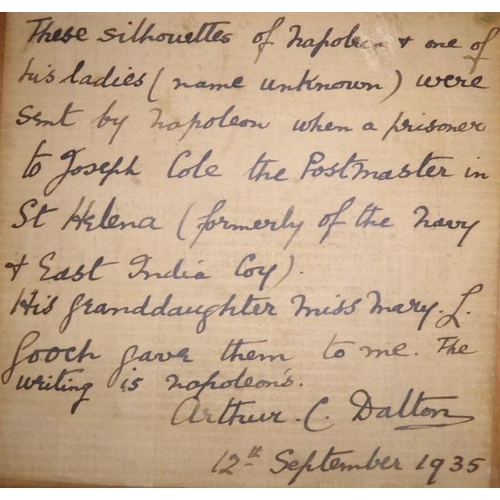 These silhouettes of Napoleon & one of
his ladies (name unknown) were
sent by Napoleon when a prisoner
to Joseph Cole the Postmaster in
St Helena (formerly of the Navy
& East India Coy).
His granddaughter Miss Mary. L.
Gooch gave them to me. The
writing is Napoleon's.
Arthur. C. Dalton
12th September 1935